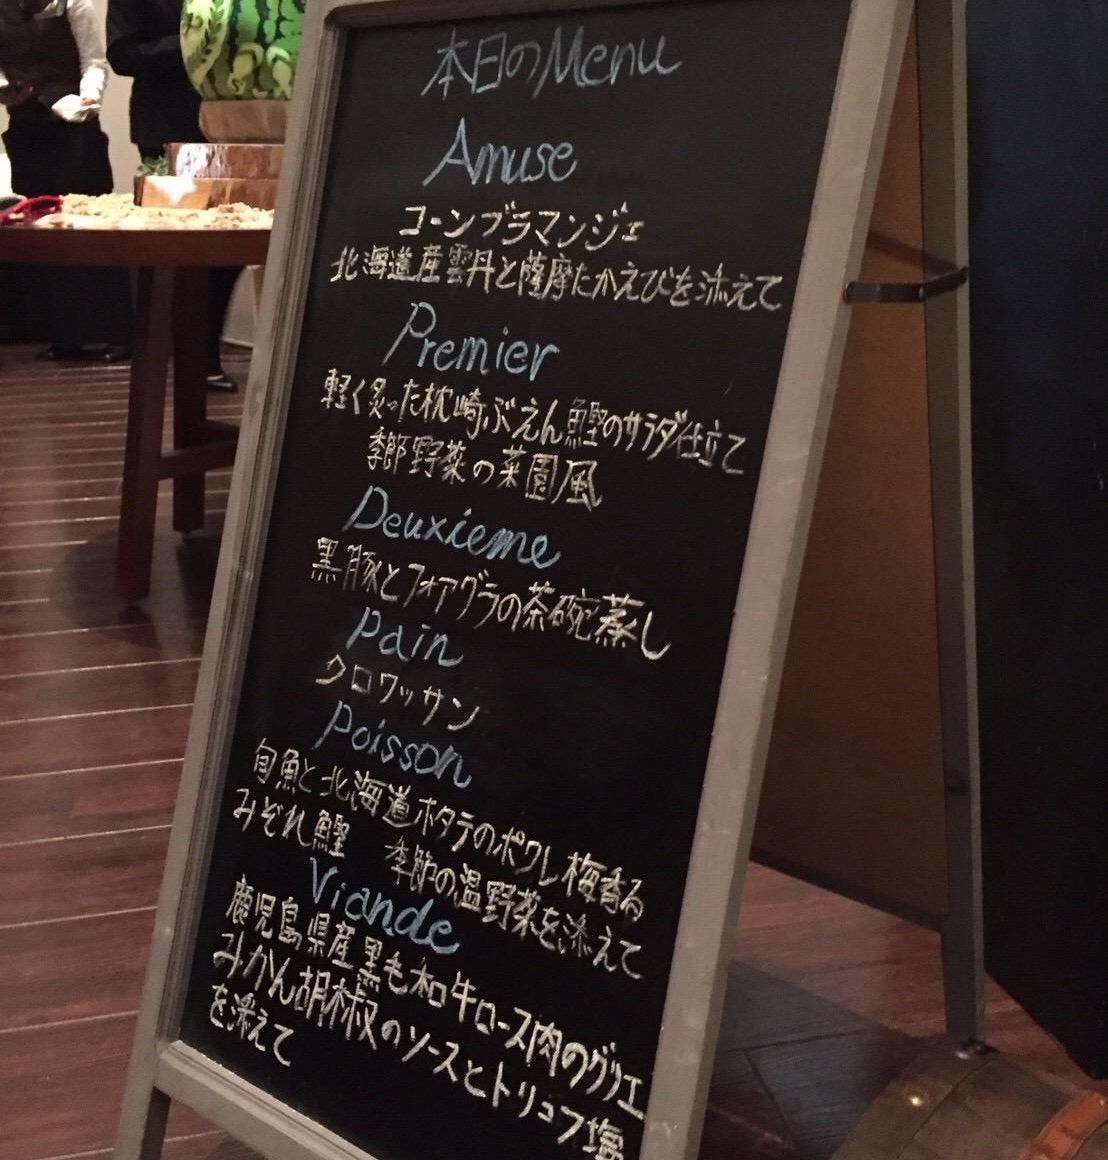 本日のMenu
Amuse
コーンブラマンジェ
北海道産雲丹と薩摩たかえびを添えて
Premier
軽く炙った枕崎ぶえん鰹のサラダ仕立て
季節野菜の菜園風
Deuxieme
黒豚とフォアグラの茶碗蒸し
Pain
クロワッサン
Poisson
旬魚と北海道ホタテのポワレ梅香る
みぞれ鰹 季節の温野菜を添えて
Viande
鹿児島県産黒毛和牛ロース肉のグリエ
みかん胡椒のソースとトリュフ塩
を添えて